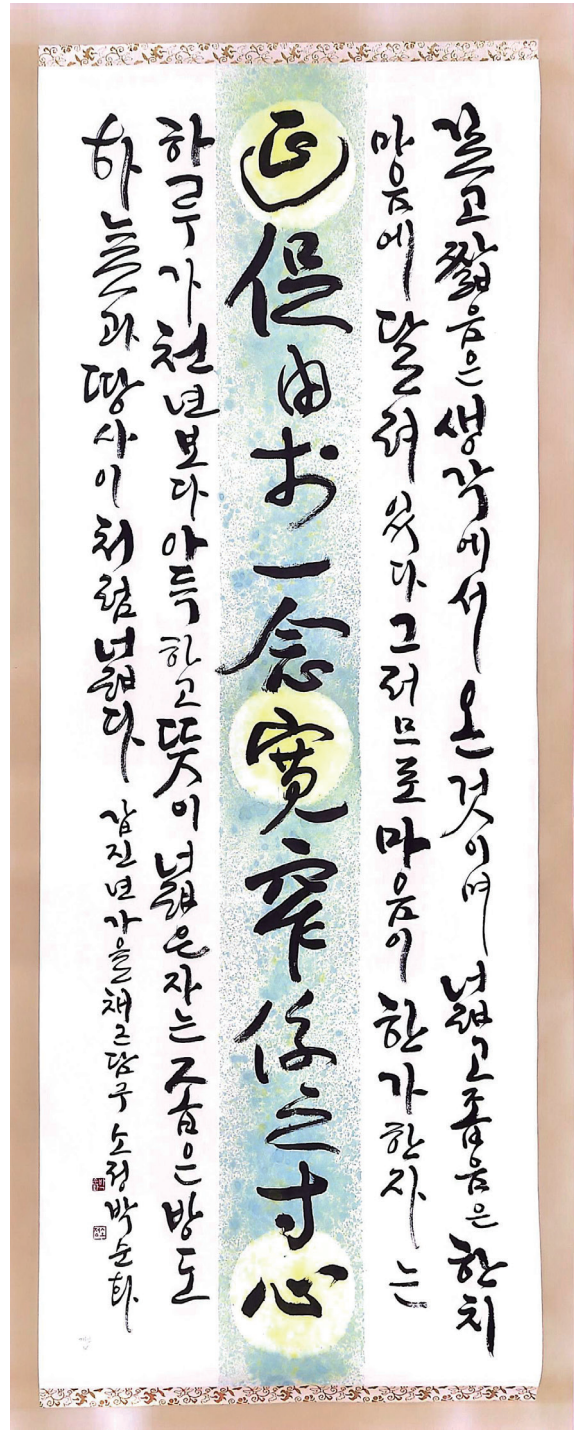 길고 짧음은 생각에서 온것이며 넓고 좁음은 한치
마음에 달려 있다 그러므로 마음이 한가한자는
延促由於一念寬窄係之寸心
하루가 천년보다 아득하고 뜻이 넓은자는 좁은 방도
하늘과 땅사이처럼 넓다 갑진년가을 채근담구 소정 박순화